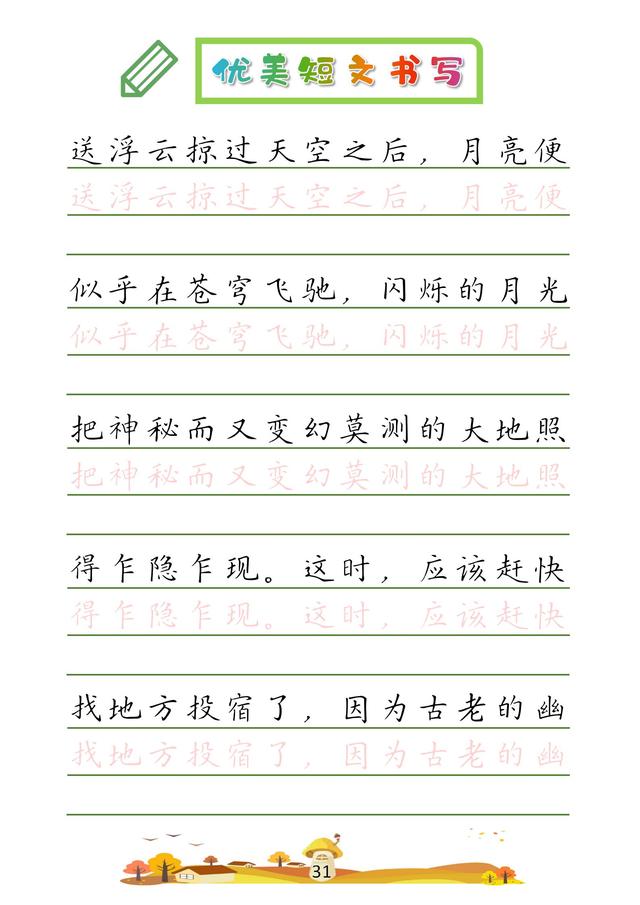 优美短文书写
送浮云掠过天空之后，月亮便
送浮云掠过天空之后，月亮便
似乎在苍穹飞驰，闪烁的月光
似乎在苍穹飞驰，闪烁的月光
把神秘而又变幻莫测的大地照
把神秘而又变幻莫测的大地照
得乍隐乍现。这时，应该赶快
得乍隐乍现。这时，应该赶快
找地方投宿了，因为古老的幽
找地方投宿了，因为古老的幽
31